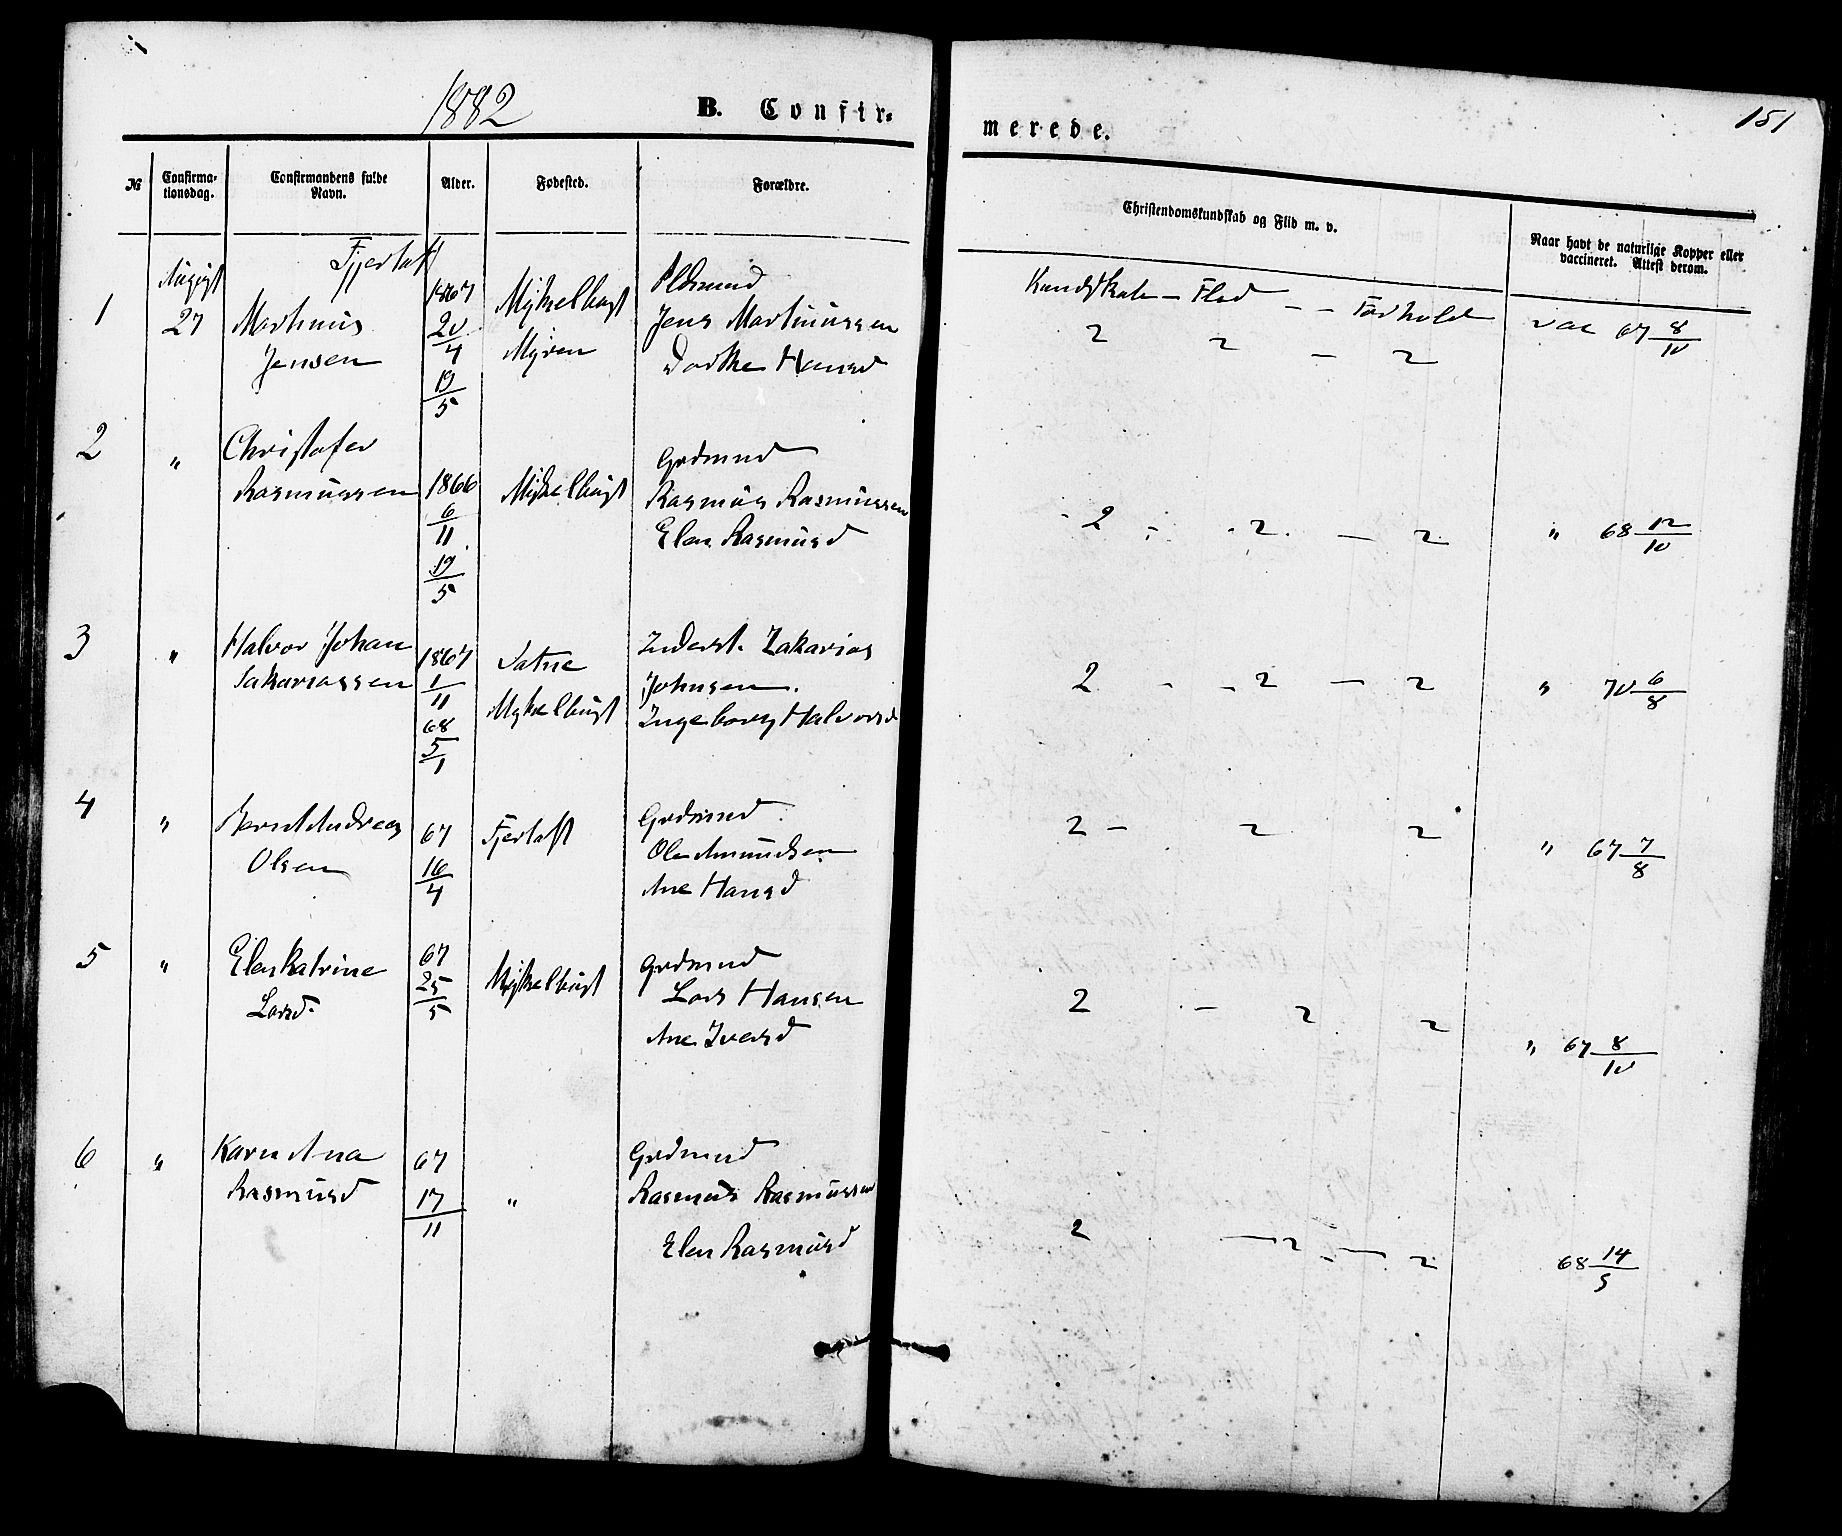 1882
B. Confir-
merede.
151
№
Confirma-
tionsdag.
Confirmandens fulde
Navn.
Alder.
Fødested.
Forældre.
Christendomskundskab og Flid m. v.
Naar havt de naturlige Kopper eller
vaccineret. Attest derom.
Fjertoft
August
Kundskab - Flid - - Forhold
1 27 Martinus 1867 Myklebust
Jensen 20/4 Myren Jens Martinussen
19/5 Dorthe Hansd
2 2 - 2 vac 67 8/10
2 " Christofer Grdmnd
Rasmussen 1866 Myklebust Rasmus Rasmussen
6/11 Elen Rasmusd
19/5
- 2 - - 2 - 2 " 68 12/10
3 " Halvor Johan 1867 Inderst. Zakarias
Sakariassen 1/11 Myklebust Johnsen.
68 Ingeborg Halvorsd
5/1
2 - - 2 - 2 " 70 6/8
4 " Bernt Andreas 67 Fjertoft Grdmnd
Olsen 16/4 Ole Amundsen
Ane Hansd
2 - 2 2 " 67 7/8
5 " Elen Katrine 67 Myklebust Grdmnd
Larsd. 25/5 Lars Hansen
Ane Iversd
2 - 2 2 " 67 8/10
6 " Karen Ana 67 " Grdmnd
Rasmusd 17/11 Rasmus Rasmussen
Elen Rasmusd
2 - 2 - - 2 68 14/5